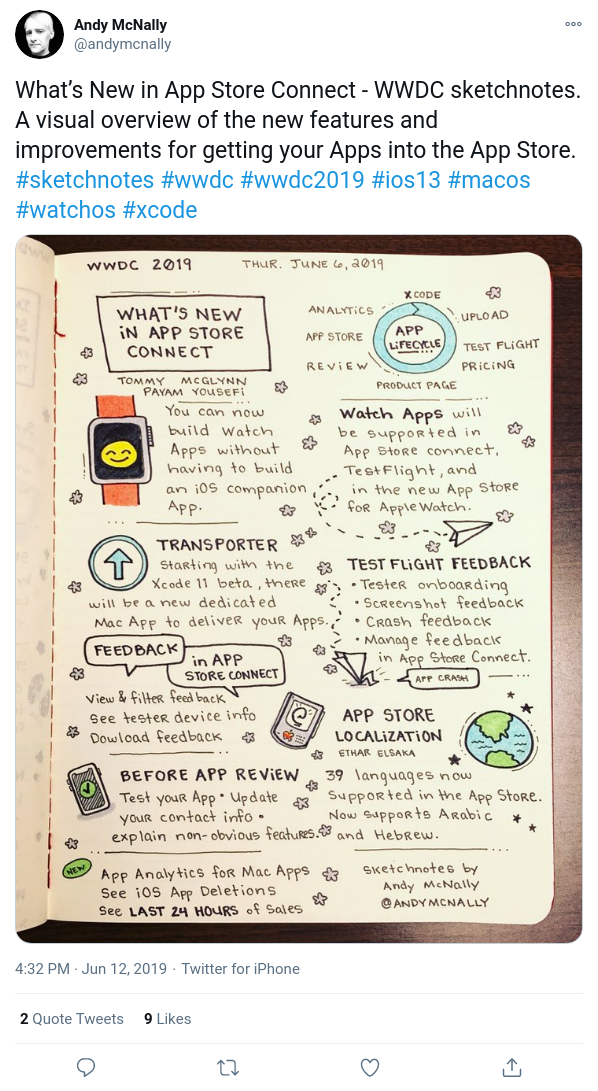 Andy McNally
@andymcnally
What's New in App Store Connect - WWDC sketchnotes.
A visual overview of the new features and
improvements for getting your Apps into the App Store.
#sketchnotes #wwdc #wwdc2019 #ios13 #macos
#watchos #xcode
WWDC 2019
THUR. JUNE 6, 2019
WHAT'S NEW
iN APP STORE
CONNECT
TOMMY MCGLYNN
PAYAM YOUSEFi
XCODE
ANALYTICS
UPLOAD
APP STORE
APP
LiFECYCLE
TEST FLIGHT
REViEW
PRiCiNG
PRODUCT PAGE
You can now
build Watch
Apps without
having to build
an iOS companion
App.
Watch Apps will
be supported in
App Store connect,
TestFlight, and
in the new App Store
for Apple Watch.
TRANSPORTER
Starting with the
Xcode 11 beta, there
will be a new dedicated
Mac App to deliver your Apps.
TEST FLiGHT FEEDBACK
• Tester onboarding
• Screenshot feedback
• Crash feedback
• Manage feedback
in App Store Connect.
APP CRASH
FEEDBACK
in APP
STORE CONNECT
View & filter feedback
See tester device info
Dowload feedback
APP STORE
LOCALiZATiON
ETHAR ELSAKA
39 languages now
Supported in the App Store.
Now supports Arabic
and Hebrew.
BEFORE APP REViEW
Test your App • Update
your contact info •
explain non-obvious features.
NEW
App Analytics for Mac Apps
See iOS App Deletions
See LAST 24 HOURS of Sales
Sketchnotes by
Andy McNally
@ANDYMCNALLY
4:32 PM · Jun 12, 2019 · Twitter for iPhone
2 Quote Tweets 9 Likes